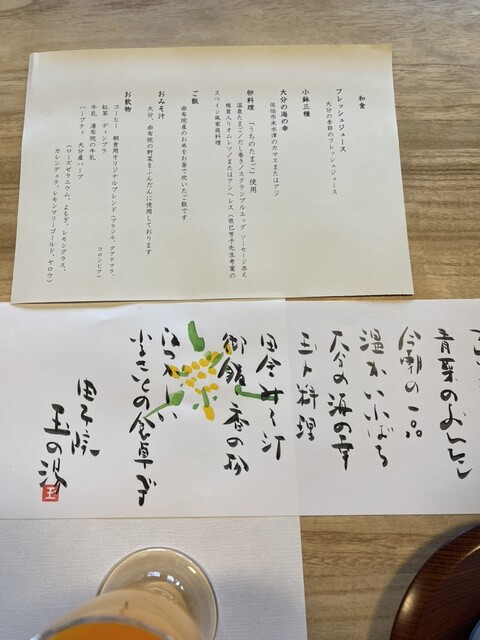 和食
フレッシュジュース
大分の季節のフレッシュジュース
小鉢三種
大分の海の幸
佐伯市米水津のカマスまたはアジ
卵料理 「うちのたまご」使用
温泉たまご/だし巻き/スクランブルエッグ ソーセージ添え
椎茸入りオムレツ/またはアンヘレス(辰巳芳子先生考案の
スペイン風家庭料理
ご飯
由布院産のお米をお釜で炊いたご飯です
おみそ汁
大分、由布院の野菜をふんだんに使用しております
お飲物
コーヒー 朝食用オリジナルブレンド(ブラジル、グアテマラ、
コロンビア)
紅茶 ディンブラ
牛乳 湯布院の牛乳
ハーブティ 大分産ハーブ
(ローズゼラニウム、よもぎ、レモングラス、
カレンデュラ、レモンマリーゴールド、ヤロウ)
青菜のおひたし
今朝の一品
温かいいばる
大分の海の幸
玉子料理
田舎みそ汁
御飯 香の物
なつかしい
ふるさとの食卓です
由布院
玉の湯
玉